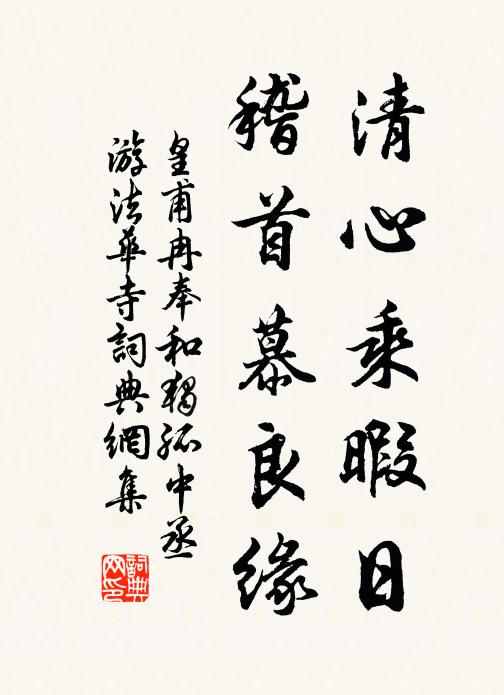 清心乘暇日
稽首慕良緣
皇甫冉奉和獨孤中丞
游法華寺詞典網集
詞典
网印